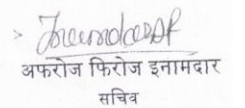 अफरोज फिरोज इनामदार
सचिव